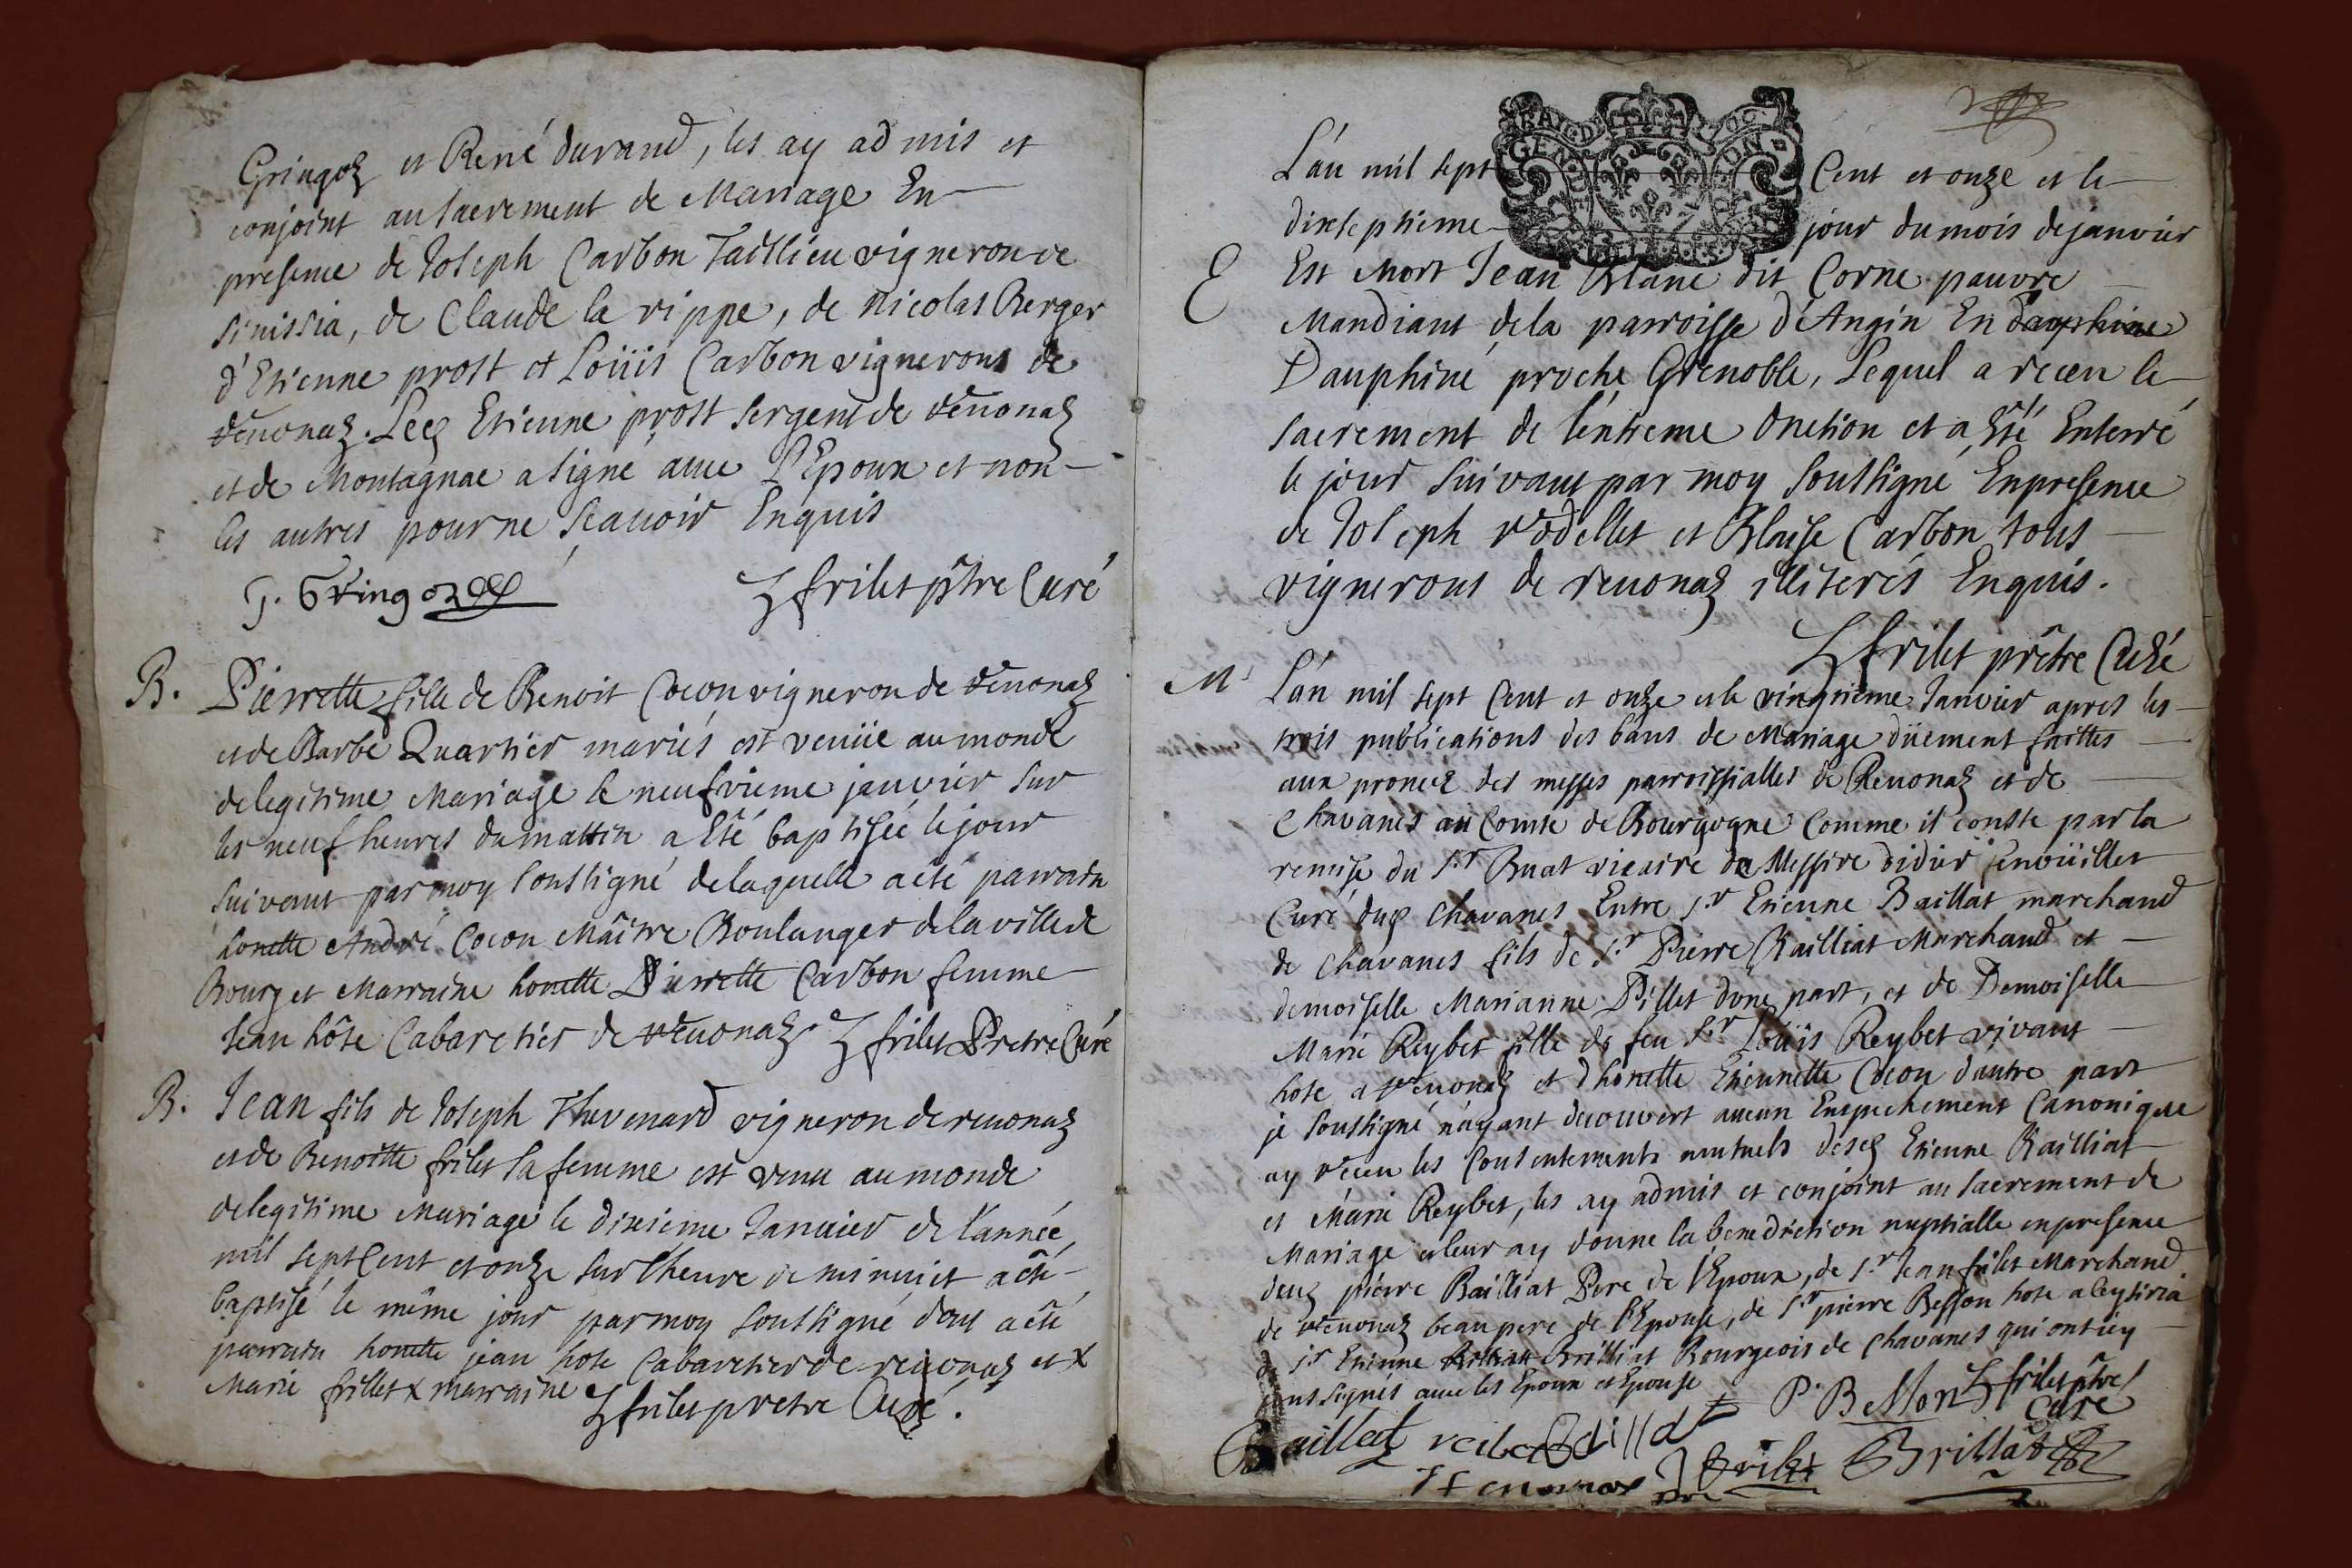 Gringoz et René durand, les ay admis et
conjoint au sacrement de Mariage En
presence de Joseph Carbon Taillieu vigneron de
Sinissia, de Claude la rippe, de Nicolas Berger
d'Etienne prost et Loüis Carbon vignerons de
revonaz. Led Etienne prost sergent de revonaz
et de Montagnac a signé avec L'Epoux et non
les autres pour ne sçavoir Enquis
J. Gringoz
frilet pstre Curé
B.
Pierrette fille de Benoit Cocon vigneron de revonaz
et de Barbe Quartier mariés est venüe au monde
de legitime Mariage le neufvieme janvier sur
les neuf heures du mattin a Eté baptisée le jour
suivant par moy soussigné de laquelle a eté parrain
honette André Cocon Maître Boulanger de la ville de
Bourg et Marraine honette Pierrette Carbon femme
Jean hôte Cabaretier de revonaz. frilet Pretre Curé
B.
Jean fils de Joseph Thevenard vigneron de revonaz
et de Benoitte frilet sa femme est venu au monde
de legitime Mariage le dixieme Janvier de l'année
mil sept Cent et onze sur l'heure de minuict a eté
baptisé le même jour par moy soussigné, dont a eté
parrain honette jean hote Cabaretier de revonaz et x
Marie frillet x marraine frilet pretre Curé.
GEN ON
L'an mil sept Cent et onze et le
dixseptieme jour du mois de janvier
E
Est Mort Jean Blanc dit Corne pauvre
Mandiant de la parroisse d'Angin En dauphine
Dauphiné proche Grenoble, Lequel a receu le
sacrement de l'entreme Onction et a Eté Enterré
le jour suivant par moy soussigné En presence
de Joseph rodellet et Blaise Carbon tous
vignerons de revonaz illiterés Enquis.
frilet prêtre Curé
M
L'an mil sept Cent et onze et le vingtieme Janvier apres les
trois publications des bans de Mariage düement faittes
aux prones des messes parroissialles de Revonaz et de
Chavanes au Comté de Bourgogne Comme il conste par la
remise du Sr Buat vicaire de Messire didier
Curé dud Chavanes Entre Sr Etienne Baillat marchand
de Chavanes fils de Sr Pierre Bailliat Marchand et
demoiselle Marianne Pillet d'une part, et de Demoiselle
Marie Reybet fille de feu Sr Loüis Reybet vivant
hote a revonaz et d'honette Etiennette Cocon d'autre part
je soussigné n'ayant decouvert aucun Empechement Canonique
ay receu les Consentements mutuels desd Etienne Bailliat
et Marie Reybet, les ay admis et conjoint au sacrement de
Mariage et leur ay donne la benediction nuptialle en presence
dud pierre Bailliat Pere de l'Epoux, de Sr Jean frilet Marchand
de revonaz beaupere de l'Epouse, de Sr pierre Besson hote a Ceysiria
de Sr Etienne Brilliat Bourgeois de Chavanes qui ont icy
soussignés avec les Epoux et Epouse
P. Besson frilet pstre
Curé
Baillat reibet Baillat
J frilet Brillat